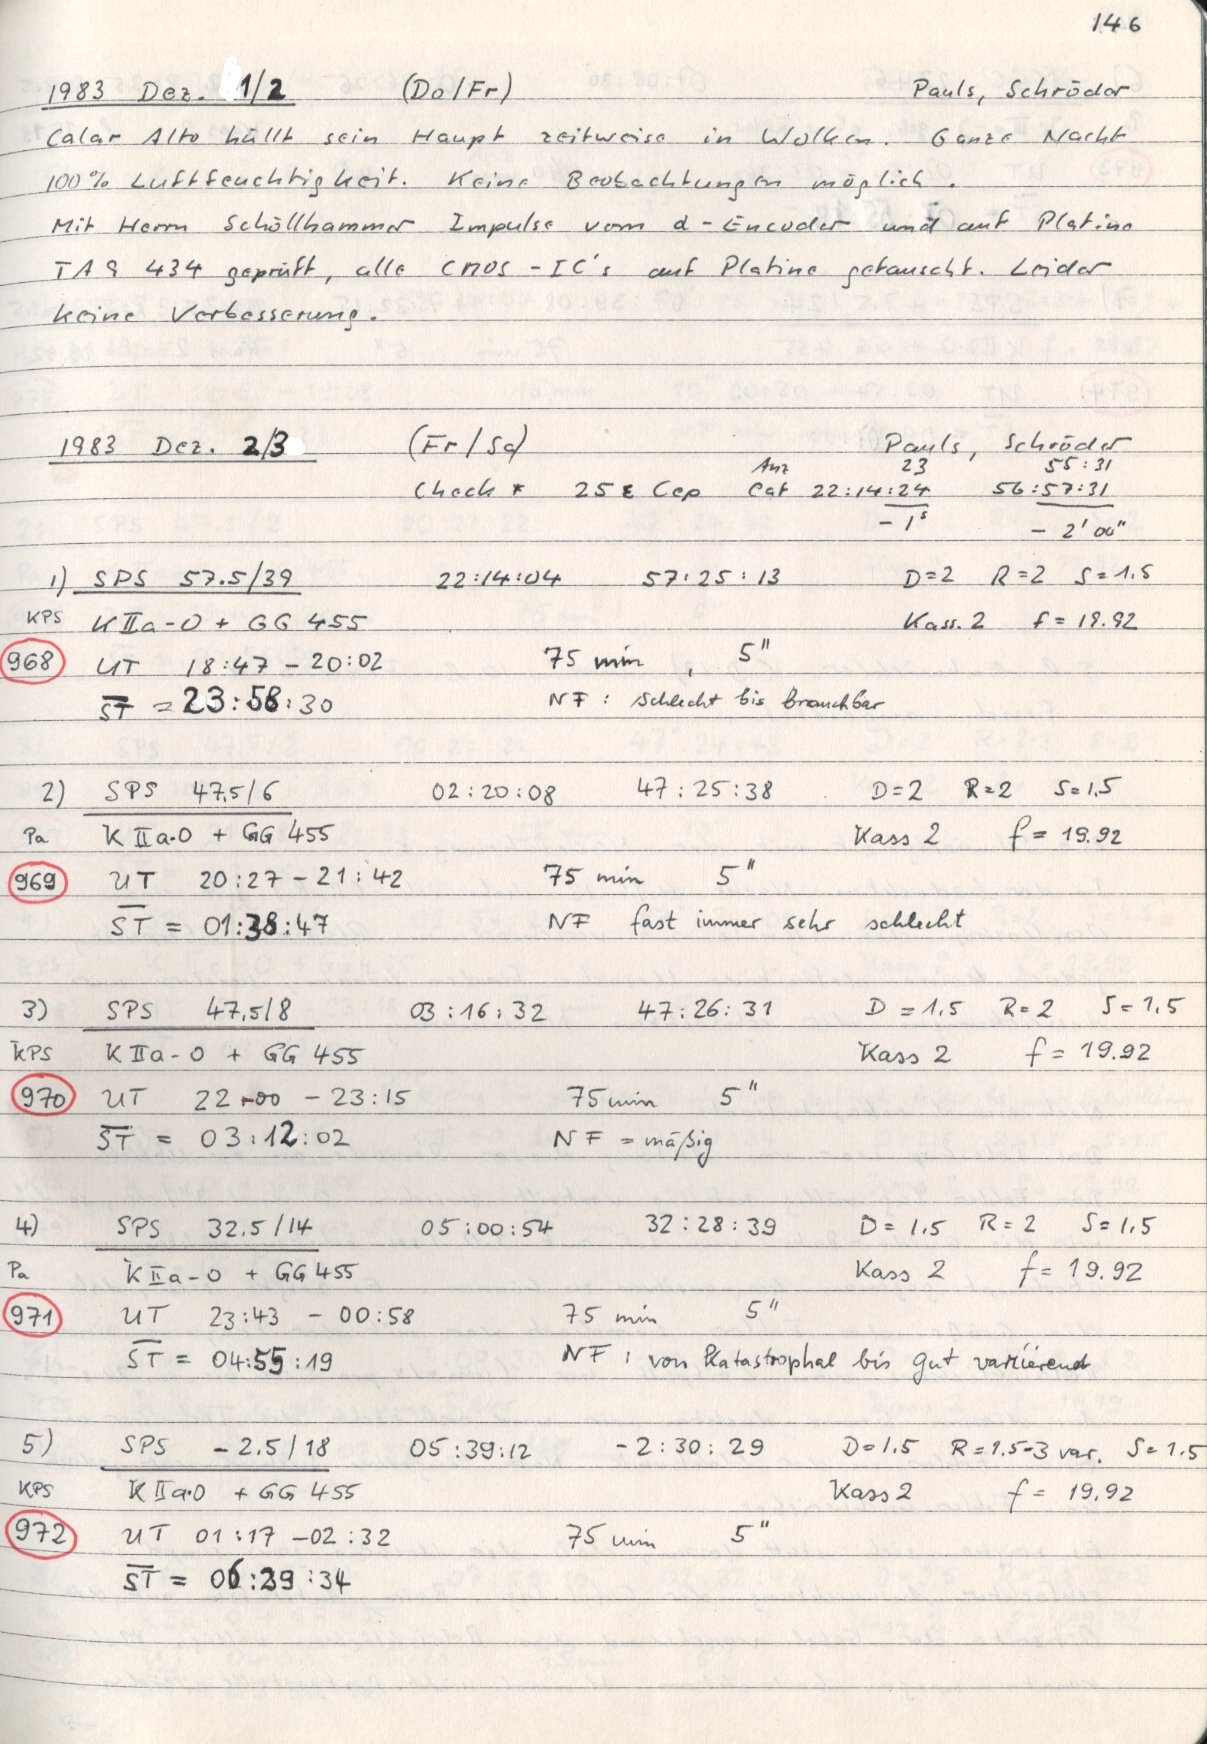 146
1983 Dez. 1/2 (Do/Fr) Pauls, Schröder
Calar Alto hüllt sein Haupt zeitweise in Wolken. Ganze Nacht
100% Luftfeuchtigkeit. Keine Beobachtungen möglich.
Mit Herrn Schöllhammer Impulse vom α-Encoder und auf Platine
TAS 434 geprüft, alle CMOS-IC's auf Platine getauscht. Leider
keine Verbesserung.
1983 Dez. 2/3 (Fr/Sa) Pauls, Schröder
Anz 23 55:31
Check * 25 ε Cep Cat 22:14:24 56:57:31
- 1ˢ - 2' 00"
1) SPS 57.5/39 22:14:04 57:25:13 D=2 R=2 S=1.5
KPS K IIa-O + GG 455 Kass. 2 f = 19.92
968 UT 18:47 - 20:02 75 min, 5"
S̅T̅ = 23:58:30 NF: Schlecht bis brauchbar
2) SPS 47.5/6 02:20:08 47:25:38 D=2 R=2 S=1.5
Pa K IIa-O + GG 455 Kass 2 f = 19.92
969 UT 20:27 - 21:42 75 min 5"
S̅T̅ = 01:38:47 NF fast immer sehr schlecht
3) SPS 47.5/8 03:16:32 47:26:31 D = 1.5 R=2 S=1.5
KPS K IIa-O + GG 455 Kass 2 f = 19.92
970 UT 22:00 - 23:15 75 min 5"
S̅T̅ = 03:12:02 NF = mäßig
4) SPS 32.5/14 05:00:54 32:28:39 D = 1.5 R = 2 S=1.5
Pa K IIa-O + GG 455 Kass 2 f = 19.92
971 UT 23:43 - 00:58 75 min 5"
S̅T̅ = 04:55:19 NF: von Katastrophal bis gut variierend
5) SPS -2.5/18 05:39:12 -2:30:29 D=1.5 R=1.5-3 var. S=1.5
KPS K IIa-O + GG 455 Kass 2 f = 19.92
972 UT 01:17 - 02:32 75 min 5"
S̅T̅ = 06:29:34